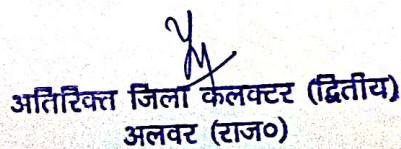 अतिरिक्त जिला कलक्टर (द्वितीय)
अलवर (राज०)